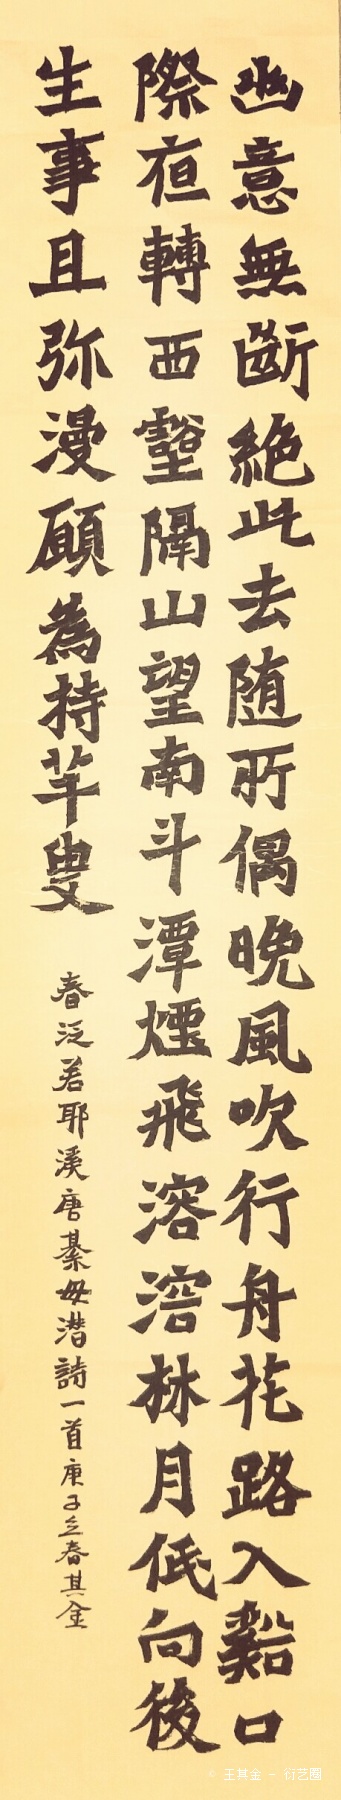 幽意無斷絕此去随所偶晚風吹行舟花路入谿口
際夜轉西壑隔山望南斗潭煙飛溶溶林月低向後
生事且弥漫願為持竿叟
春泛若耶溪唐綦毋潛詩一首庚子立春其金
© 王其金 - 衍艺圈